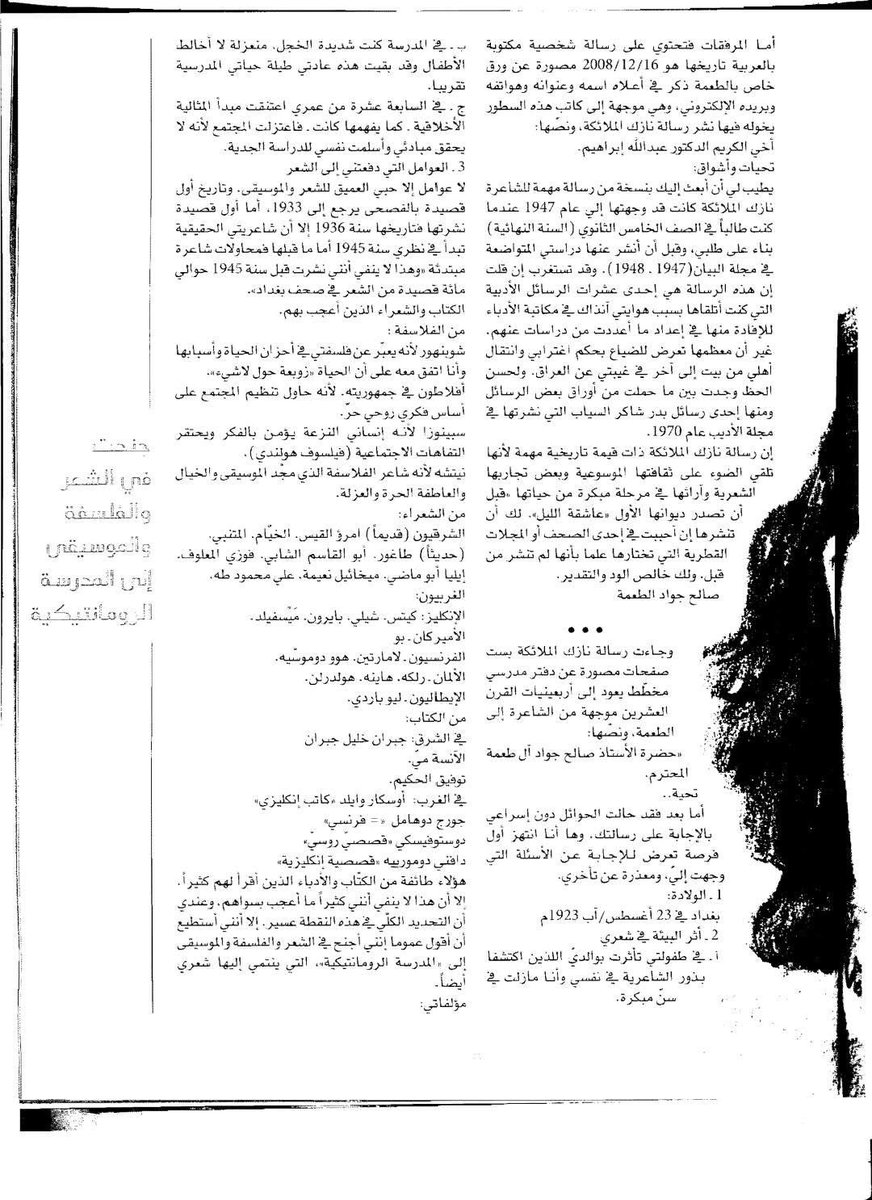 أما المرفقات فتحتوي على رسالة شخصية مكتوبة
بالعربية تاريخها هو 2008/12/16 مصورة عن ورق
خاص بالطعمة ذكر في أعلاه اسمه وعنوانه وهواتفه
وبريده الإلكتروني، وهي موجهة إلى كاتب هذه السطور
يخوله فيها نشر رسالة نازك الملائكة، ونصّها:
أخي الكريم الدكتور عبدالله إبراهيم.
تحيات وأشواق:
يطيب لي أن أبعث إليك بنسخة من رسالة مهمة للشاعرة
نازك الملائكة كانت قد وجهتها إلي عام 1947 عندما
كنت طالباً في الصف الخامس الثانوي (السنة النهائية)
بناء على طلبي، وقبل أن أنشر عنها دراستي المتواضعة
في مجلة البيان(1947 ـ 1948). وقد تستغرب إن قلت
إن هذه الرسالة هي إحدى عشرات الرسائل الأدبية
التي كنت أتلقاها بسبب هوايتي آنذاك في مكاتبة الأدباء
للإفادة منها في إعداد ما أعددت من دراسات عنهم،
غير أن معظمها تعرض للضياع بحكم اغترابي وانتقال
أهلي من بيت إلى آخر في غيبتي عن العراق، ولحسن
الحظ وجدت بين ما حملت من أوراق بعض الرسائل
ومنها إحدى رسائل بدر شاكر السياب التي نشرتها في
مجلة الأديب عام 1970.
إن رسالة نازك الملائكة ذات قيمة تاريخية مهمة لأنها
تلقي الضوء على ثقافتها الموسوعية وبعض تجاربها
الشعرية وآرائها في مرحلة مبكرة من حياتها «قبل
أن تصدر ديوانها الأول «عاشقة الليل». لك أن
تنشرها إن أحببت في إحدى الصحف أو المجلات
القطرية التي تختارها علما بأنها لم تنشر من
قبل، ولك خالص الود والتقدير.
صالح جواد الطعمة
•••
وجاءت رسالة نازك الملائكة بست
صفحات مصورة عن دفتر مدرسي
مخطّط يعود إلى أربعينيات القرن
العشرين موجهة من الشاعرة إلى
الطعمة، ونصّها:
«حضرة الأستاذ صالح جواد آل طعمة
المحترم.
تحية..
أما بعد فقد حالت الحوائل دون إسراعي
بالإجابة على رسالتك، وها أنا انتهز أول
فرصة تعرض للإجابة عن الأسئلة التي
وجهت إليّ، ومعذرة عن تأخري.
1 ـ الولادة:
بغداد في 23 أغسطس/آب 1923م
2 ـ أثر البيئة في شعري
أ ـ في طفولتي تأثرت بوالديّ اللذين اكتشفا
بذور الشاعرية في نفسي وأنا مازلت في
سنّ مبكرة.
ب ـ في المدرسة كنت شديدة الخجل، منعزلة لا أخالط
الأطفال وقد بقيت هذه عادتي طيلة حياتي المدرسية
تقريبا.
ج ـ في السابعة عشرة من عمري اعتنقت مبدأ المثالية
الأخلاقية ـ كما يفهمها كانت ـ فاعتزلت المجتمع لأنه لا
يحقق مبادئي وأسلمت نفسي للدراسة الجدية.
3 ـ العوامل التي دفعتني إلى الشعر
لا عوامل إلا حبي العميق للشعر والموسيقى، وتاريخ أول
قصيدة بالفصحى يرجع إلى 1933، أما أول قصيدة
نشرتها فتاريخها سنة 1936 إلا أن شاعريتي الحقيقية
تبدأ في نظري سنة 1945 أما ما قبلها فمحاولات شاعرة
مبتدئة «وهذا لا ينفي أنني نشرت قبل سنة 1945 حوالي
مائة قصيدة من الشعر في صحف بغداد».
الكتاب والشعراء الذين أعجب بهم.
من الفلاسفة :
شوبنهور لأنه يعبّر عن فلسفتي في أحزان الحياة وأسبابها
وأنا اتفق معه على أن الحياة «زوبعة حول لاشيء».
أفلاطون في جمهوريته، لأنه حاول تنظيم المجتمع على
أساس فكري روحي حرّ.
سبينوزا لأنه إنساني النزعة يؤمن بالفكر ويحتقر
التفاهات الاجتماعية (فيلسوف هولندي).
نيتشه لأنه شاعر الفلاسفة الذي مجّد الموسيقى والخيال
والعاطفة الحرة والعزلة.
من الشعراء:
الشرقيون (قديماً) امرؤ القيس، الخيّام، المتنبي.
(حديثاً) طاغور، أبو القاسم الشابي، فوزي المعلوف،
إيليا أبو ماضي، ميخائيل نعيمة، علي محمود طه.
الغربيون:
الإنكليز: كيتس، شيلي، بايرون، مَيْسفيلد.
الأميركان ـ بو
الفرنسيون ـ لامارتين، هوو دوموسّيه.
الألمان ـ رلكه، هاينه، هولدرلن.
الإيطاليون ـ ليو باردي.
من الكتاب:
في الشرق: جبران خليل جبران
الآنسة ميّ.
توفيق الحكيم.
في الغرب: أوسكار وايلد «كاتب إنكليزي»
جورج دوهامل «= فرنسي»
دوستوفيسكي «قصصيّ روسيّ»
دافني دومورييه «قصصية إنكليزية»
هؤلاء طائفة من الكتّاب والأدباء الذين أقرأ لهم كثيراً،
إلا أن هذا لا ينفي أنني كثيراً ما أعجب بسواهم، وعندي
أن التحديد الكلّي في هذه النقطة عسير، إلا أنني أستطيع
أن أقول عموما إنني أجنح في الشعر والفلسفة والموسيقى
إلى «المدرسة الرومانتيكية»، التي ينتمي إليها شعري
أيضاً.
مؤلفاتي:
جنحت
في الشعر
والفلسفة
والموسيقى
إلى المدرسة
الرومانتيكية